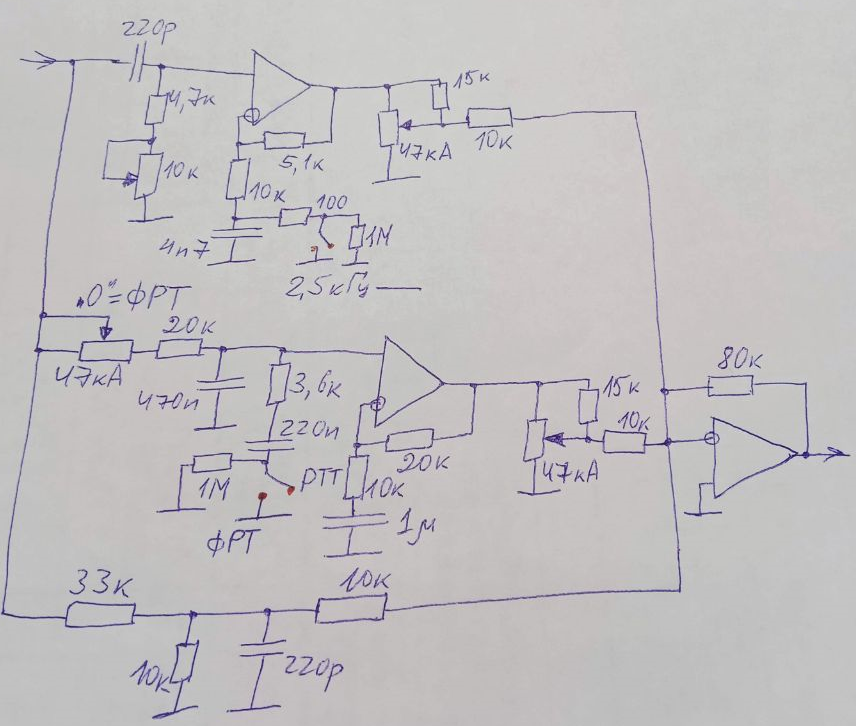 220p
4,7к
15к
10к
5,1к
47кА
10к
10к
100
4n7
1М
2,5кГц
„0"=ФРТ
20к
47кА
470п
3,6к
15к
80к
220п
20к
10к
47кА
1М
РТТ
10к
1μ
ФРТ
33к
10к
10к
220p